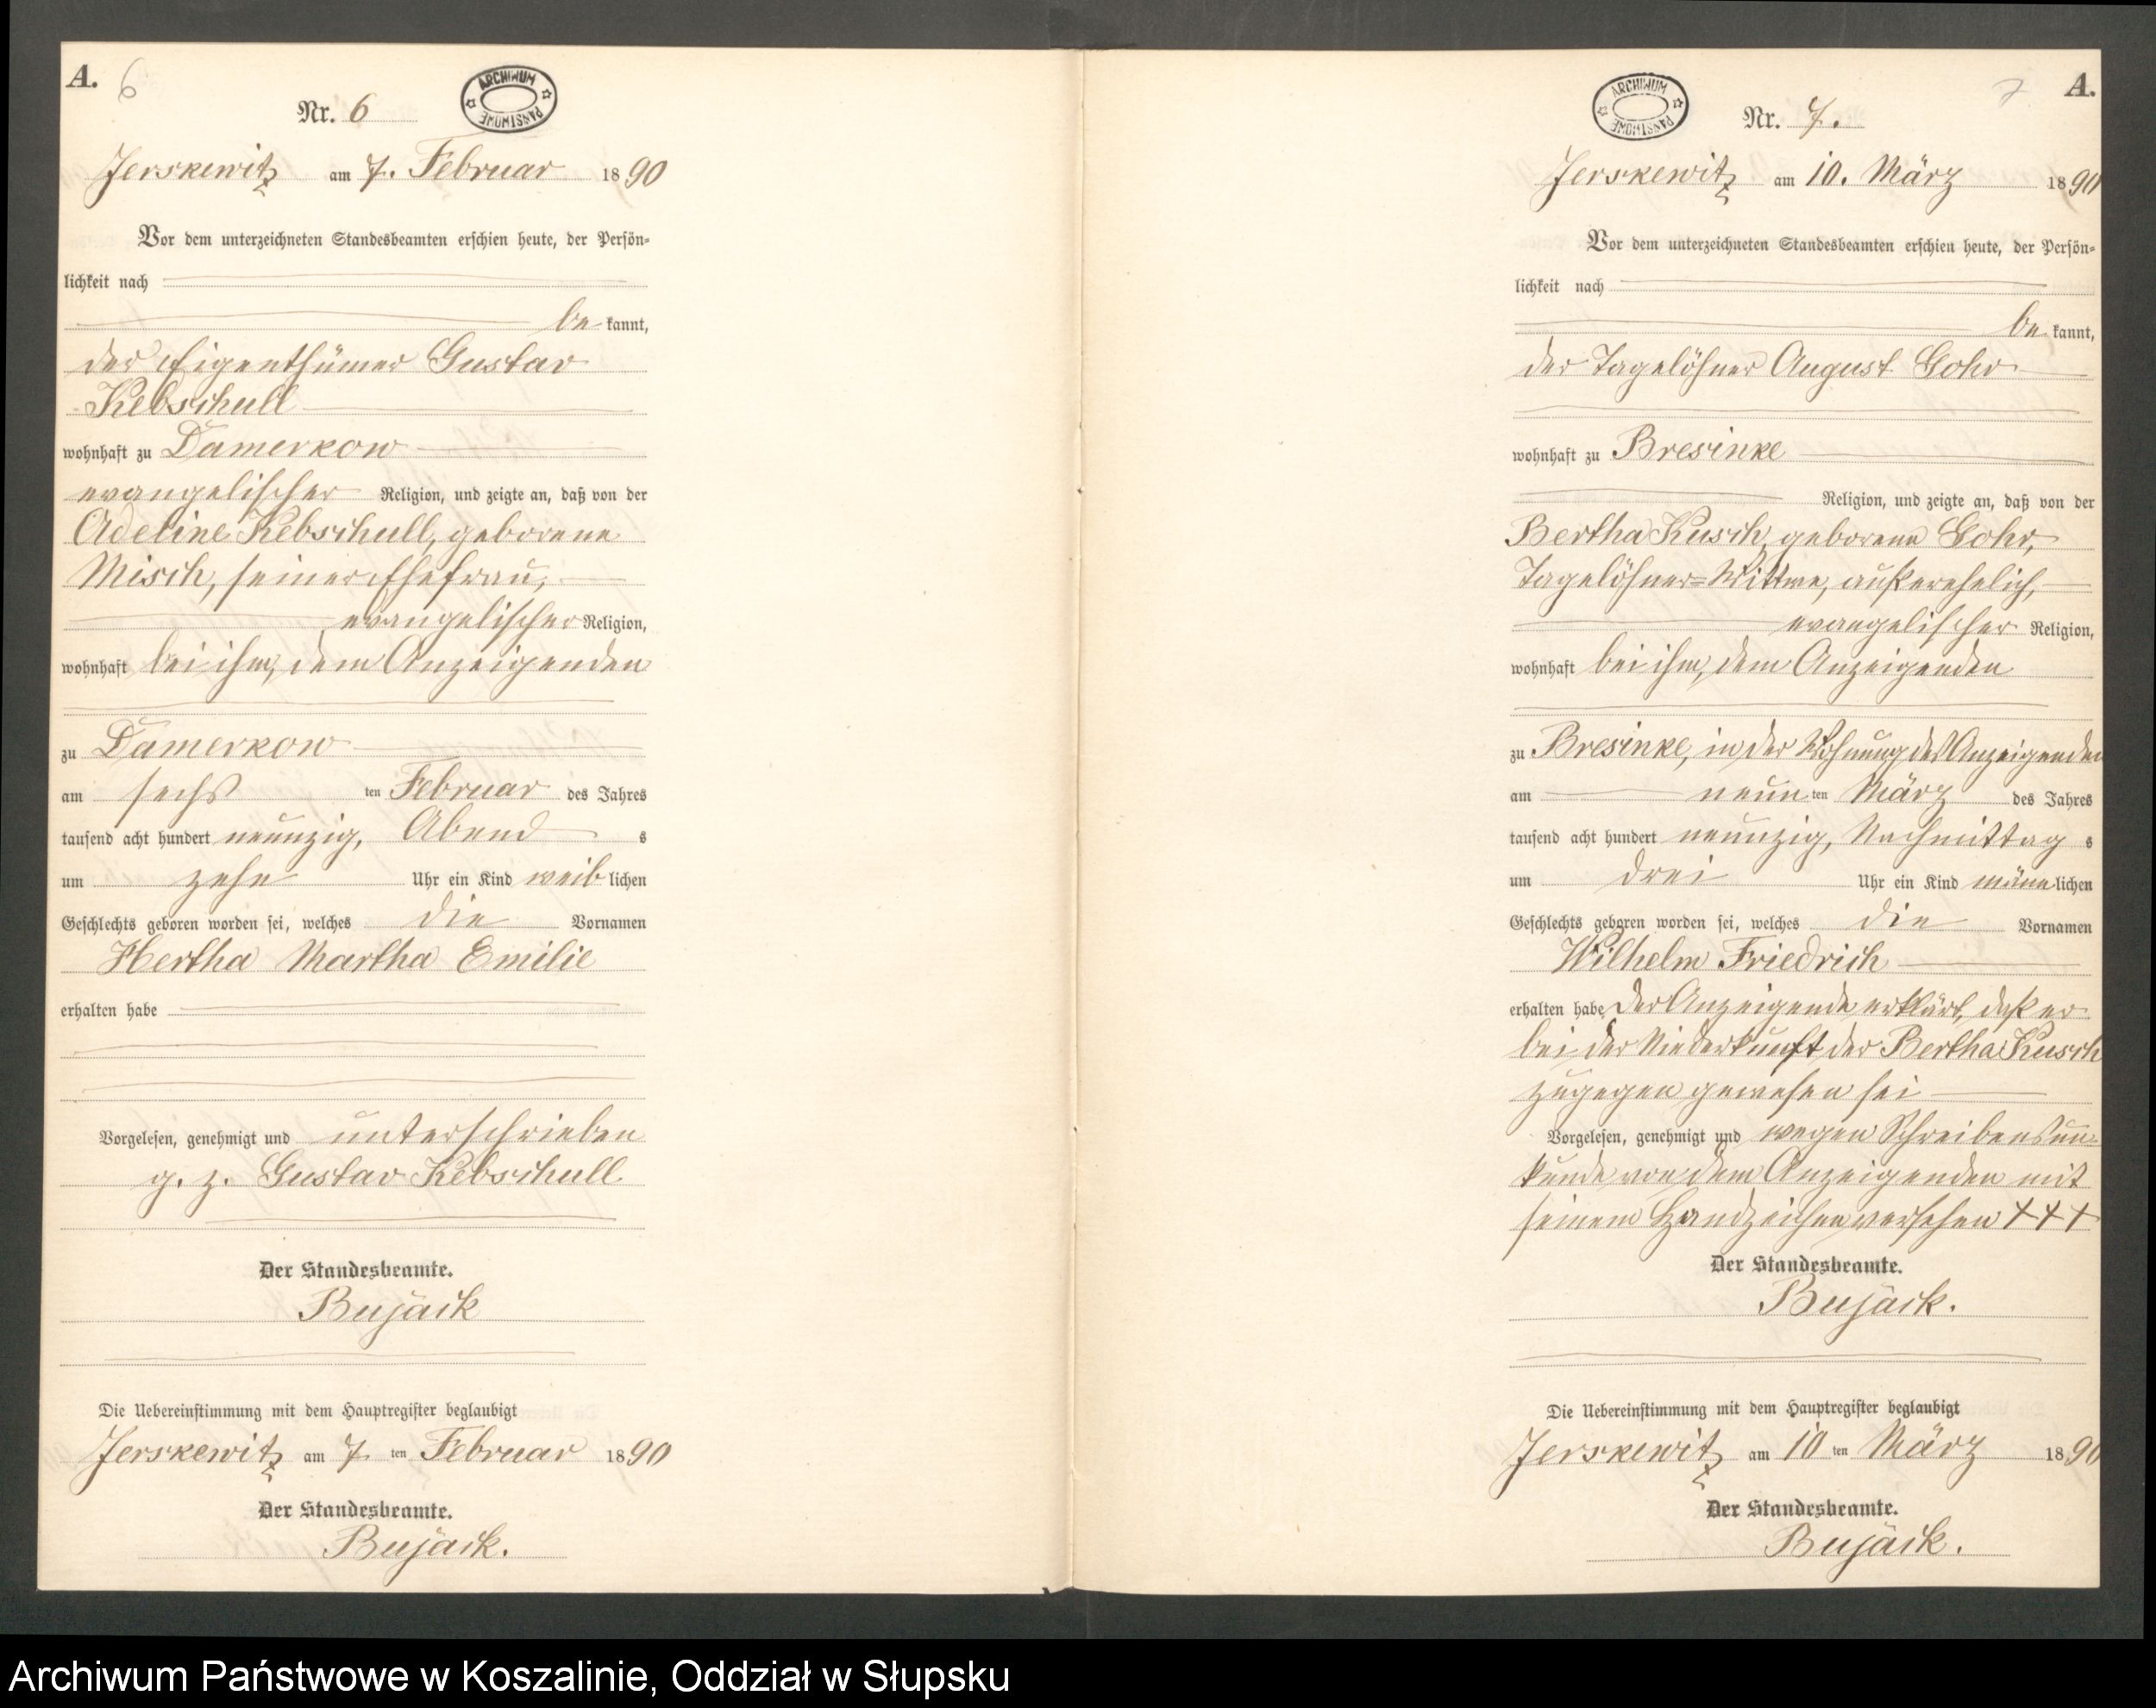 A. 6
ARCHIWUM PAŃSTWOWE
Nr. 6
Jerskewitz am 7. Februar 1890
Vor dem unterzeichneten Standesbeamten erschien heute, der Persön-
lichkeit nach
be kannt,
der Eigenthümer Gustav
Kebschull
wohnhaft zu Damerkow
evangelischer Religion, und zeigte an, daß von der
Adeline Kebschull, geborene
Misch, seiner Ehefrau,
evangelischer Religion,
wohnhaft bei ihm, dem Anzeigenden
zu Damerkow
am sechs ten Februar des Jahres
tausend acht hundert neunzig, Abend s
um zehn Uhr ein Kind weib lichen
Geschlechts geboren worden sei, welches die Vornamen
Hertha Martha Emilie
erhalten habe
Vorgelesen, genehmigt und unterschrieben
g. z. Gustav Kebschull
Der Standesbeamte.
Bujack
Die Uebereinstimmung mit dem Hauptregister beglaubigt
Jerskewitz am 7 ten Februar 1890
Der Standesbeamte.
Bujack.
7 A.
ARCHIWUM PAŃSTWOWE
Nr. 7.
Jerskewitz am 10. März 1890
Vor dem unterzeichneten Standesbeamten erschien heute, der Persön-
lichkeit nach
be kannt,
der Tagelöhner August Gohr
wohnhaft zu Bresinke
Religion, und zeigte an, daß von der
Bertha Kusch, geborene Gohr,
Tagelöhner-Wittwe, außerehelich,
evangelischer Religion,
wohnhaft bei ihm, dem Anzeigenden
zu Bresinke, in der Wohnung des Anzeigenden
am neun ten März des Jahres
tausend acht hundert neunzig, Nachmittag s
um drei Uhr ein Kind männ lichen
Geschlechts geboren worden sei, welches die Vornamen
Wilhelm Friedrich
erhalten habe. Der Anzeigende erklärt, daß er
bei der Niederkunft der Bertha Kusch
zugegen gewesen sei
Vorgelesen, genehmigt und wegen Schreibensun-
kunde von dem Anzeigenden mit
seinem Handzeichen versehen +++
Der Standesbeamte.
Bujack.
Die Uebereinstimmung mit dem Hauptregister beglaubigt
Jerskewitz am 10 ten März 1890
Der Standesbeamte.
Bujack.
Archiwum Państwowe w Koszalinie, Oddział w Słupsku